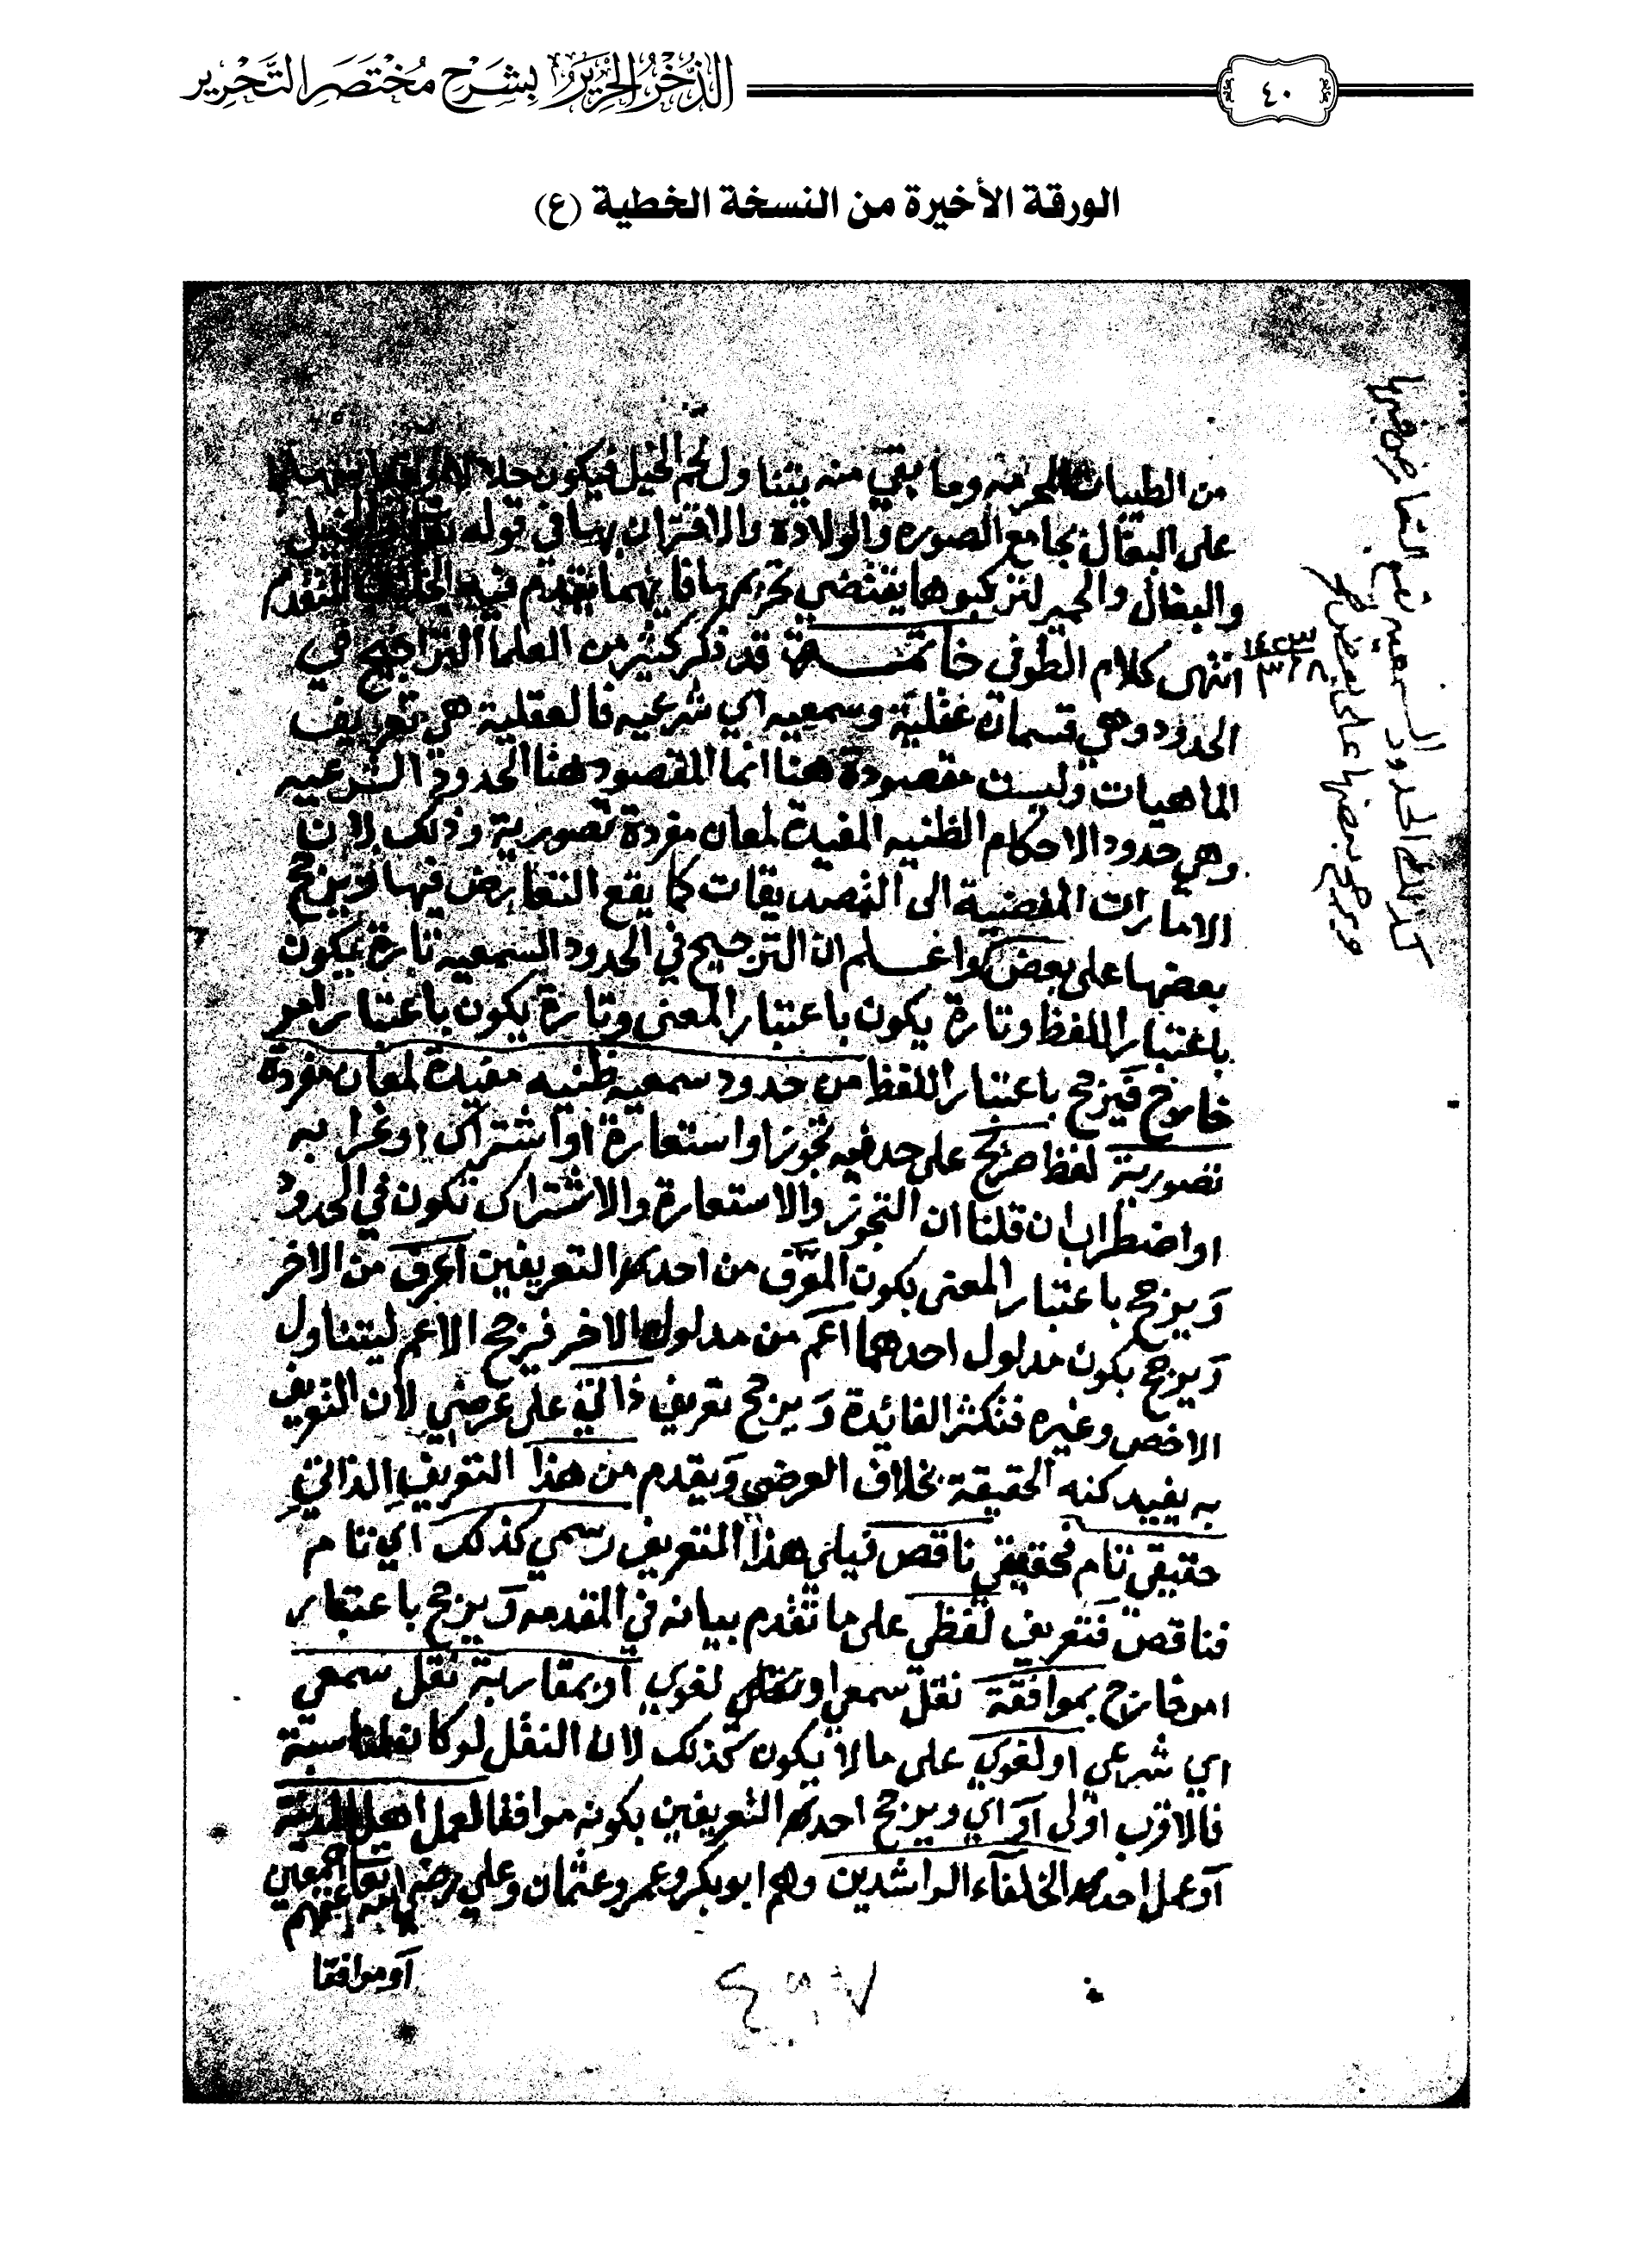 الذُّخْرُ الحَرِيرُ بِشَرْحِ مُخْتَصَرِ التَّحْرِيرِ
٤٠
الورقة الأخيرة من النسخة الخطية (ع)
من الطيبات المحرمة وما بقي منه يتناول لحم الخيل فيكون حلالا
على البغال بجامع الصوره والولادة والاقتران بها في قوله تعالى والخيل
والبغال والحمير لتركبوها يقتضي تحريمها فانهما يقدم فيه الخلاف المتقدم
انتهى كلام الطوفى خاتمة قد ذكر كثير من العلما التراجيح في
الحدود وهي قسمان عقلية وسمعيه اي شرعيه فالعقلية هي تعريف
الماهيات وليست مقصودة هنا انما المقصود هنا الحدود الشرعيه
وهي حدود الاحكام الظنيه المفيدة لمعان مفردة تصورية وذلك لان
الامارات المفضية الى التصديقات كما يقع التعارض فيها ويرجح
بعضها على بعض كذلك الحدود السمعيه يقع التعارض فيها ويرجح بعضها على بعض
واعلم ان الترجيح في الحدود السمعيه تارة يكون
باعتبار اللفظ وتارة يكون باعتبار المعنى وتارة يكون باعتبار امر
خارج فيرجح باعتبار اللفظ من حدود سمعيه ظنيه مفيدة لمعان مفردة
تصورية لفظ صريح على حد فيه تجوز او استعارة او اشتراك او غرابه
او اضطراب ان قلنا ان التجوز والاستعارة والاشتراك تكون في الحدود
ويرجح باعتبار المعنى بكون المعرف من احد التعريفين اعرف من الاخر
ويرجح بكون مدلول احدهما اعم من مدلول الاخر فيرجح الاعم ليتناول
الاخص وغيره فتكثر الفائدة ويرجح تعريف ذاتي على عرضي لان التعريف
به يفيد كنه الحقيقة بخلاف العرضي ويقدم من هذا التعريف الذاتي
حقيقي تام فحقيقي ناقص فيلي هذا التعريف رسمي كذلك اي تام
فناقص فتعريف لفظي على ما تقدم بيانه في المقدمه ويرجح باعتبار
امر خارج بموافقة نقل سمعي او نقل لغوي او بمقاربة نقل سمعي
اي شرعي او لغوي على ما لا يكون كذلك لان النقل لو كان لمناسبة
فالاقرب اولى او اي ويرجح احد التعريفين بكونه موافقا لعمل اهل المدينة
او عمل احد الخلفاء الراشدين وهم ابو بكر وعمر وعثمان وعلي رضي الله تعالى عنهم اجمعين
او موافقا